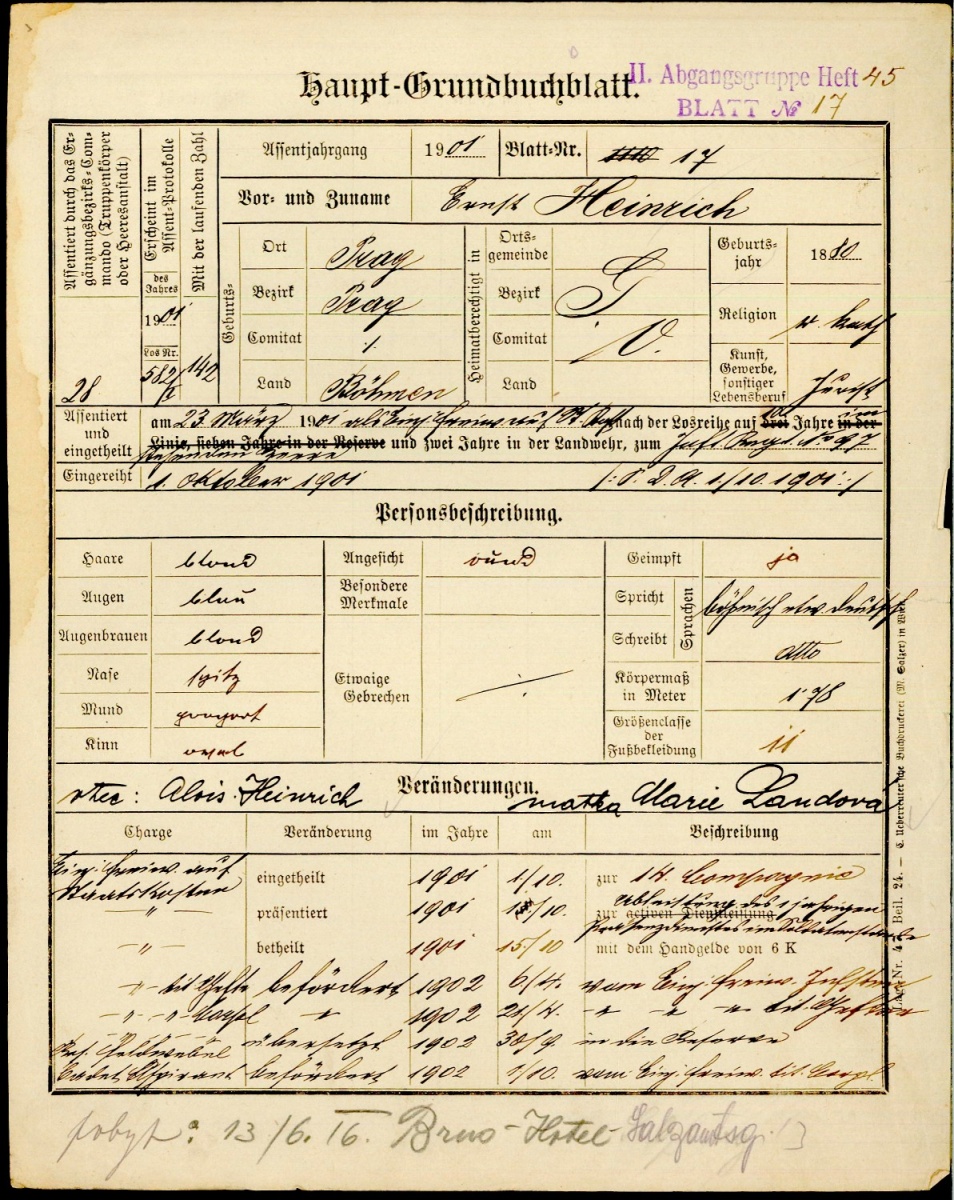 Haupt-Grundbuchblatt.
II. Abgangsgruppe Heft 45
BLATT № 17
Assentiert durch das Ergänzungsbezirks-Commando (Truppenkörper oder Heeresanstalt)
28
Erscheint im Assent-Protokolle
des Jahres
1901
Los Nr.
582/
Mit der laufenden Zahl
142
Assentjahrgang 1901 Blatt-Nr. 17
Vor- und Zuname Ernst Heinrich
Geburts-
Ort Prag
Bezirk Prag
Comitat ./.
Land Böhmen
Heimatberechtigt in
Ortsgemeinde
Bezirk
Comitat
Land
Geburtsjahr 1880
Religion r. kath
Kunst, Gewerbe, sonstiger Lebensberuf Jurist
Assentiert und eingetheilt
am 23 März 1901 als Einj. Freiw. auf nach der Losreihe auf drei Jahre in der
Linie, sieben Jahre in der Reserve und zwei Jahre in der Landwehr, zum Inft. Regt. No 97
Eingereiht 1. Oktober 1901 /: P. D. A. 1./10. 1901 :/
Personsbeschreibung.
Haare blond
Augen blau
Augenbrauen blond
Nase spitz
Mund proport
Kinn oval
Angesicht rund
Besondere Merkmale
Etwaige Gebrechen ./.
Geimpft ja
Sprachen
Spricht böhmisch etw. deutsch
Schreibt dtto
Körpermaß in Meter 1·78
Größenclasse der Fußbekleidung 11
Veränderungen.
otec: Alois Heinrich
matka Marie Landová
Charge Veränderung im Jahre am Beschreibung
Einj. Freiw. auf Staatskosten eingetheilt 1901 1/10. zur 14. Compagnie
-"- präsentiert 1901 /10. zur activen Dienstleistung Ableistung des 1 jährigen Präsenzdienstes im Soldatenstande
-"- betheilt 1901 15/10 mit dem Handgelde von 6 K
-"- tit. Gefte befördert 1902 6/4. vom Einj. Freiw.
-"- -"- Corpl -"- 1902 /4. -"- -"- -"- tit. Geften
übersetzt 1902 30/9. in die Reserve
Res. Feldwebel Cadet Aspirant befördert 1902 1/10. vom Einj. Freiw. tit. Corpl.
pobyt: 13/6. 16. Brno-Hotel
Lager-Nr. 4 Beil. 24. — C. Ueberreuter'sche Buchdruckerei (M. Salzer) in Wien.